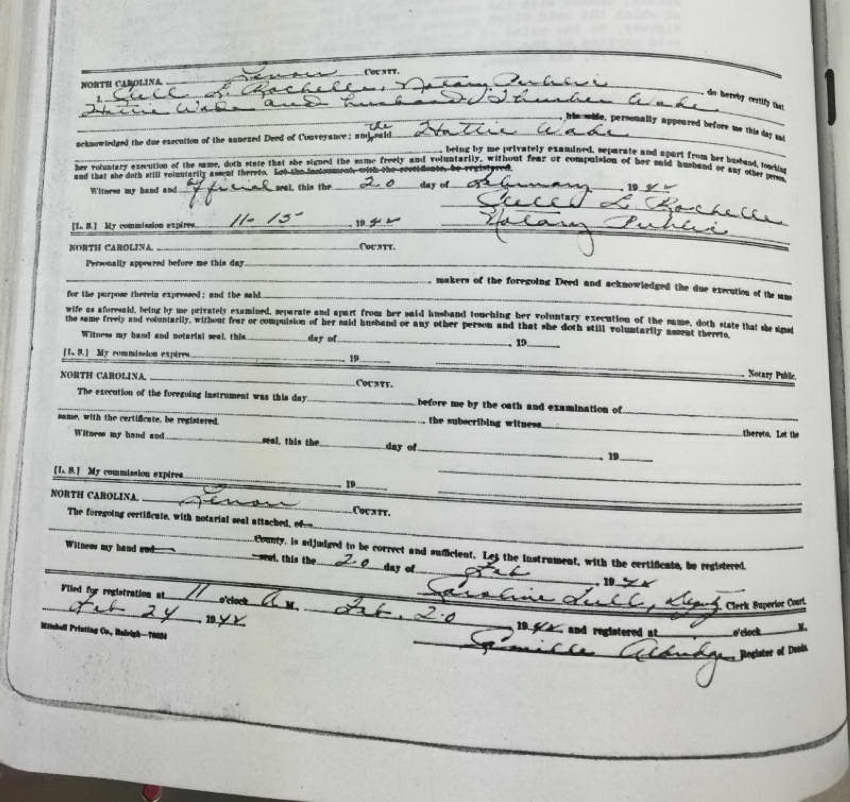 NORTH CAROLINA. Lenoir COUNTY.
I, Stell L. Rochelle, Notary Public, do hereby certify that
Hattie Wade and husband, Thurber Wade
his wife, personally appeared before me this day and
acknowledged the due execution of the annexed Deed of Conveyance; and the said Hattie Wade
being by me privately examined, separate and apart from her husband, touching
her voluntary execution of the same, doth state that she signed the same freely and voluntarily, without fear or compulsion of her said husband or any other person,
and that she doth still voluntarily assent thereto. Let the instrument, with the certificate, be registered.
Witness my hand and official seal, this the 20 day of February, 1942
Stell L. Rochelle
[L. S.] My commission expires 11-15 1942 Notary Public
NORTH CAROLINA. COUNTY.
Personally appeared before me this day
makers of the foregoing Deed and acknowledged the due execution of the same
for the purpose therein expressed; and the said
wife as aforesaid, being by me privately examined, separate and apart from her said husband touching her voluntary execution of the same, doth state that she signed
the same freely and voluntarily, without fear or compulsion of her said husband or any other person and that she doth still voluntarily assent thereto.
Witness my hand and notarial seal, this day of , 19
[L. S.] My commission expires 19 Notary Public.
NORTH CAROLINA. COUNTY.
The execution of the foregoing instrument was this day before me by the oath and examination of
the subscribing witness thereto. Let the
same, with the certificate, be registered.
Witness my hand and seal, this the day of , 19
[L. S.] My commission expires 19
NORTH CAROLINA. Lenoir COUNTY.
The foregoing certificate, with notarial seal attached, of
County, is adjudged to be correct and sufficient. Let the instrument, with the certificate, be registered.
Witness my hand and seal, this the 20 day of Feb , 1942
Caroline, Deputy Clerk Superior Court.
Filed for registration at 11 o'clock A M. Feb. 20 1942 and registered at o'clock M.
Feb 24, 1942
Camille Aldridge, Register of Deeds
Mitchell Printing Co., Raleigh—